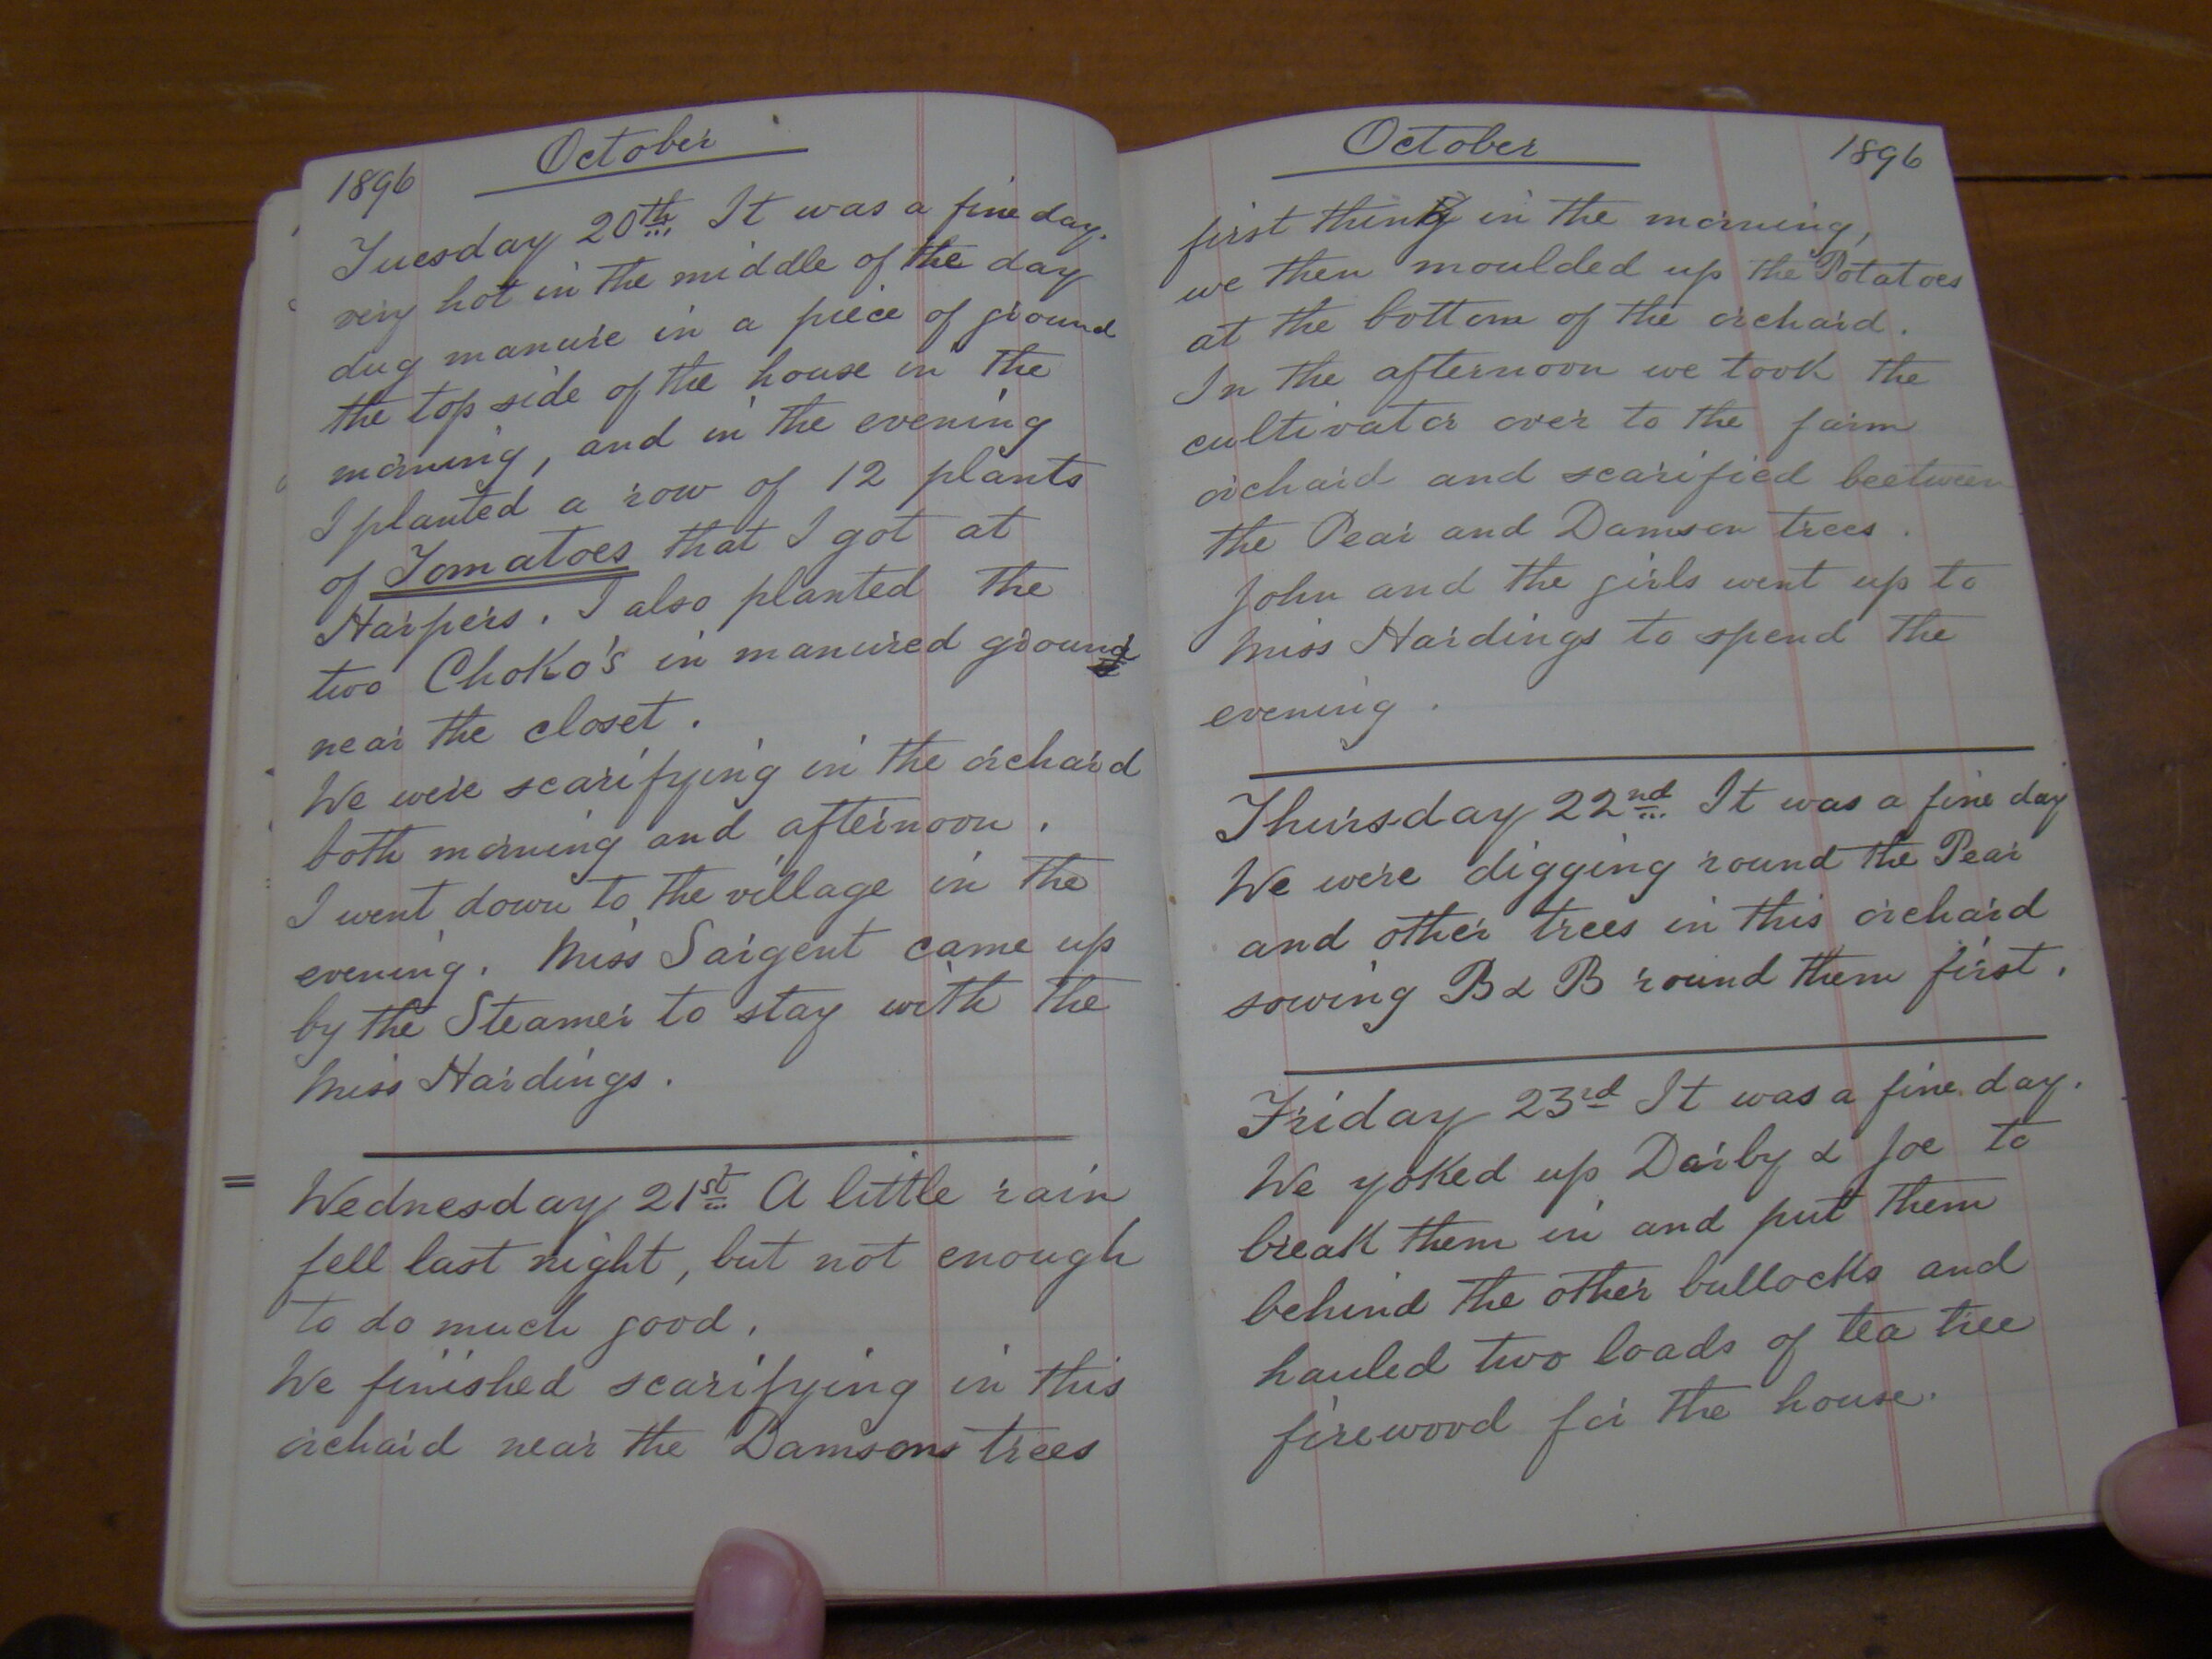 October
1896
Tuesday 20th It was a fine day.
very hot in the middle of the day
dug manure in a piece of ground
the top side of the house in the
morning, and in the evening
I planted a row of 12 plants
of Tomatoes that I got at
Harpers. I also planted the
two Choko's in manured ground
near the closet.
We were scarifying in the orchard
both morning and afternoon.
I went down to the village in the
evening. Miss Sargent came up
by the Steamer to stay with the
Miss Hardings.
Wednesday 21st A little rain
fell last night, but not enough
to do much good.
We finished scarifying in this
orchard near the Damsons trees
October
1896
first thing in the morning,
we then moulded up the Potatoes
at the bottom of the orchard.
In the afternoon we took the
cultivator over to the farm
orchard and scarified beetween
the Pear and Damson trees.
John and the girls went up to
Miss Hardings to spend the
evening.
Thursday 22nd It was a fine day
We were digging round the Pear
and other trees in this orchard
sowing B & B round them first.
Friday 23rd It was a fine day.
We yoked up Darby & Joe to
break them in and put them
behind the other bullocks and
hauled two loads of tea tree
firewood for the house.